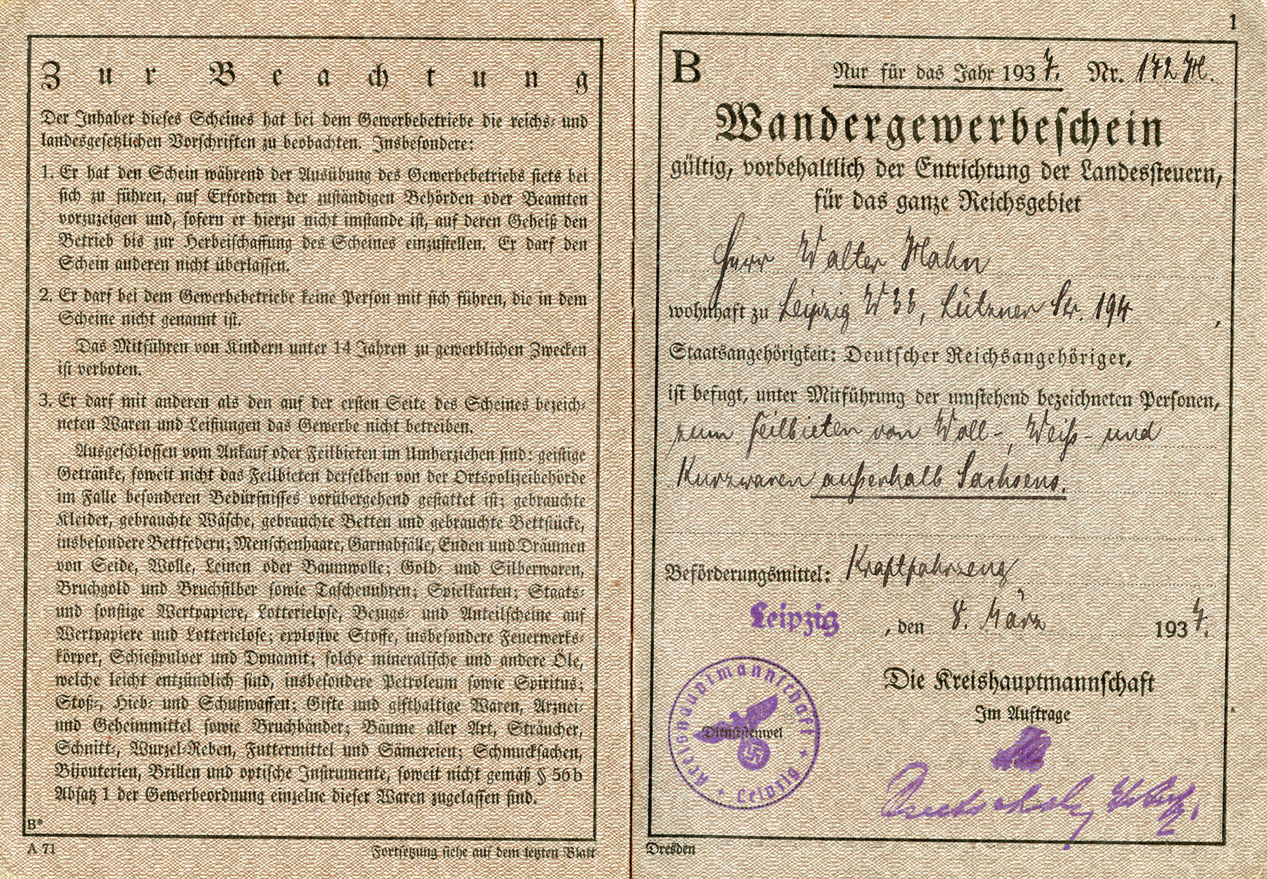 Zur Beachtung
Der Inhaber dieses Scheines hat bei dem Gewerbebetriebe die reichs- und
landesgesetzlichen Vorschriften zu beobachten. Insbesondere:
1. Er hat den Schein während der Ausübung des Gewerbebetriebs stets bei
sich zu führen, auf Erfordern der zuständigen Behörden oder Beamten
vorzuzeigen und, sofern er hierzu nicht imstande ist, auf deren Geheiß den
Betrieb bis zur Herbeischaffung des Scheines einzustellen. Er darf den
Schein anderen nicht überlassen.
2. Er darf bei dem Gewerbebetriebe keine Person mit sich führen, die in dem
Scheine nicht genannt ist.
Das Mitführen von Kindern unter 14 Jahren zu gewerblichen Zwecken
ist verboten.
3. Er darf mit anderen als den auf der ersten Seite des Scheines bezeich-
neten Waren und Leistungen das Gewerbe nicht betreiben.
Ausgeschlossen vom Ankauf oder Feilbieten im Umherziehen sind: geistige
Getränke, soweit nicht das Feilbieten derselben von der Ortspolizeibehörde
im Falle besonderen Bedürfnisses vorübergehend gestattet ist; gebrauchte
Kleider, gebrauchte Wäsche, gebrauchte Betten und gebrauchte Bettstücke,
insbesondere Bettfedern; Menschenhaare, Garnabfälle, Enden und Dräumen
von Seide, Wolle, Leinen oder Baumwolle; Gold- und Silberwaren,
Bruchgold und Bruchsilber sowie Taschenuhren; Spielkarten; Staats-
und sonstige Wertpapiere, Lotterielose, Bezugs- und Anteilscheine auf
Wertpapiere und Lotterielose; explosive Stoffe, insbesondere Feuerwerks-
körper, Schießpulver und Dynamit; solche mineralische und andere Öle,
welche leicht entzündlich sind, insbesondere Petroleum sowie Spiritus;
Stoß-, Hieb- und Schußwaffen; Gifte und gifthaltige Waren, Arznei-
und Geheimmittel sowie Bruchbänder; Bäume aller Art, Sträucher,
Schnitt-, Wurzel-Reben, Futtermittel und Sämereien; Schmucksachen,
Bijouterien, Brillen und optische Instrumente, soweit nicht gemäß § 56b
Absatz 1 der Gewerbeordnung einzelne dieser Waren zugelassen sind.
B*
A 71
Fortsetzung siehe auf dem letzten Blatt
1
B Nur für das Jahr 1937. Nr. 172
Wandergewerbeschein
gültig, vorbehaltlich der Entrichtung der Landessteuern,
für das ganze Reichsgebiet
Herr Walter Hahn
wohnhaft zu Leipzig W33, Lützner Str. 194,
Staatsangehörigkeit: Deutscher Reichsangehöriger,
ist befugt, unter Mitführung der umstehend bezeichneten Personen,
zum Feilbieten von Woll-, Weiß- und
Kurzwaren außerhalb Sachsens.
Beförderungsmittel: Kraftfahrzeug
Leipzig, den 8. März 1937.
Die Kreishauptmannschaft
Im Auftrage
Kreishauptmannschaft
Dienststempel
Leipzig
Dresden